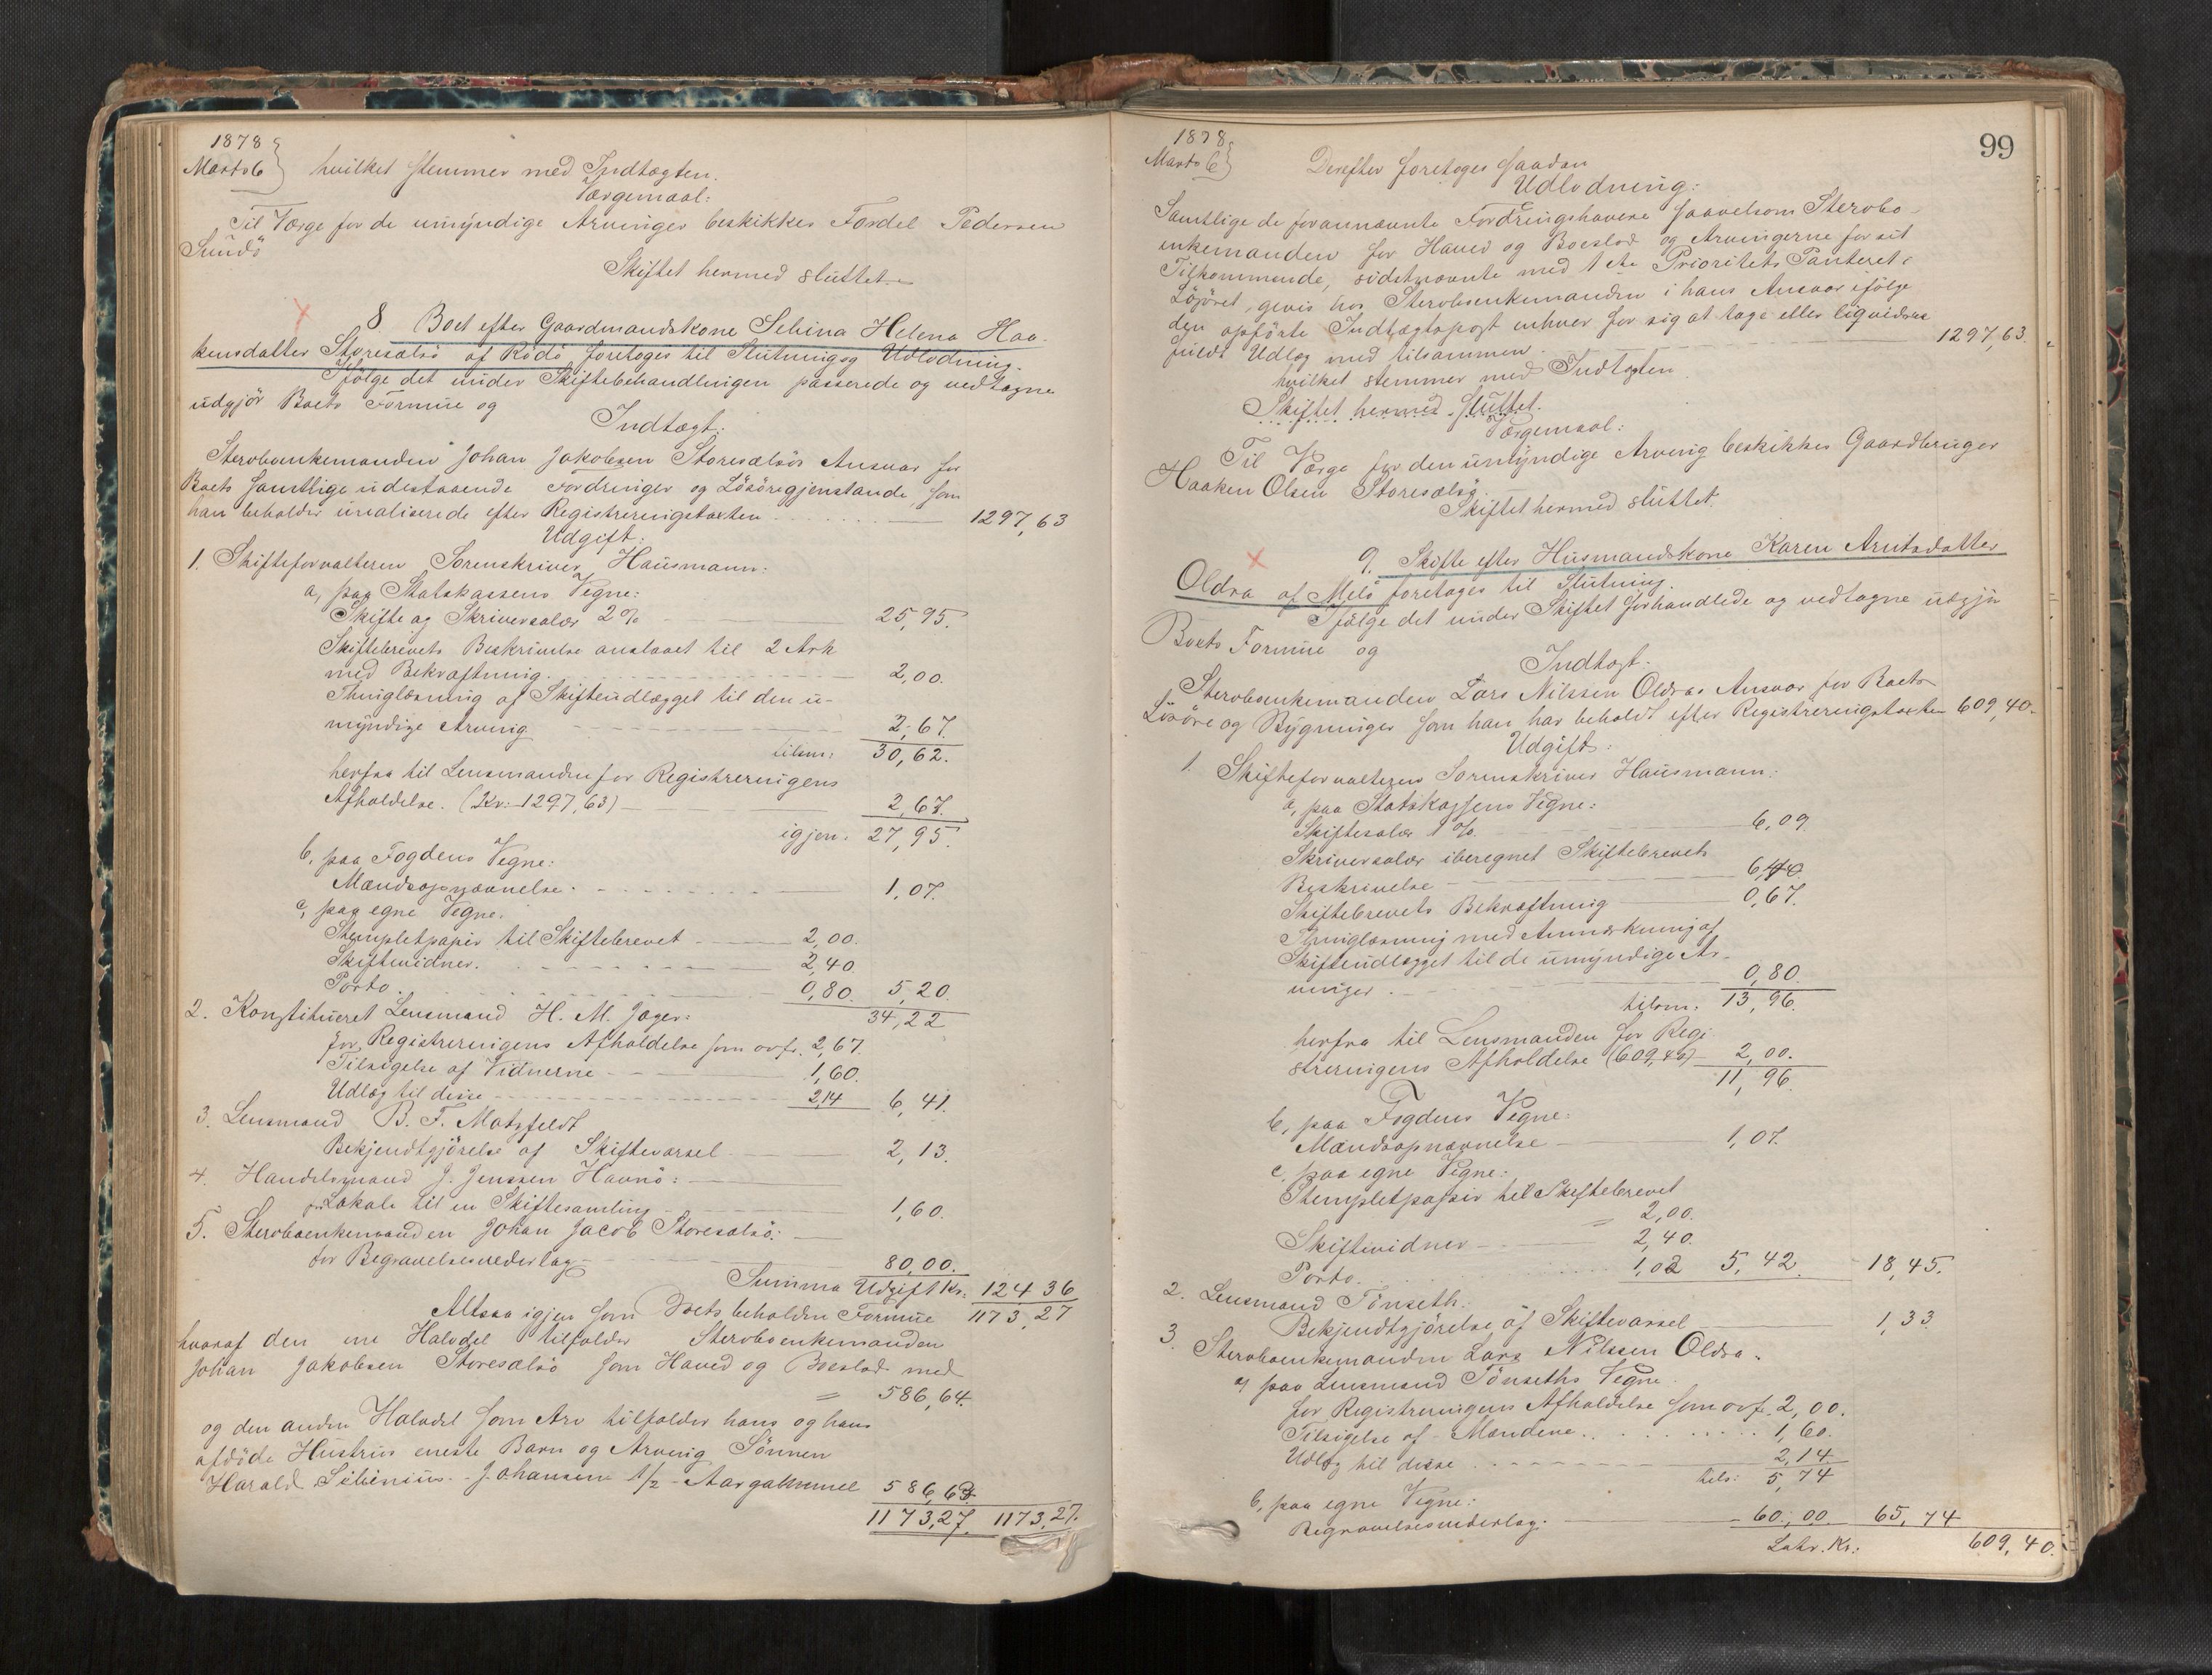 1878
Marts 6 } hvilket stemmer med Indtægten.
Værgemaal:
Til Værge for de umyndige Arvinger beskikkes Fordel Pedersen
Sundö
Skiftet hermed sluttet.
8. Boet efter Gaardmandskone Sebina Helena Haa-
kensdatter Storesælsö af Rödö foretoges til Slutning og Udlodning.
Ifölge det under Skiftebehandlingen passerede og vedtagne
udgjör Boets Formue og
Indtægt:
Sterboenkemanden Johan Jakobsen Storesælsös Ansvar for
Boets samtlige udestaaende Fordringer og Lösöregjenstande som
han beholder urealiserede efter Registreringstaxten 1297,63
Udgift:
1. Skifteforvalteren Sorenskriver Hausmann:
a, paa Statskassens Vegne:
Skifte og Skriversalær 2% 25,95.
Skiftebrevets Beskrivelse anslaaet til 2 Ark
med Bekræftning. 2,00.
Thinglæsning af Skifteudlægget til den u-
myndige Arving 2,67.
tilsm: 30,62.
herfra til Lensmanden for Registreringens
Afholdelse. (Kr: 1297,63) 2,67.
igjen. 27,95.
b, paa Fogdens Vegne:
Mandsopnævnelse. 1,07.
c, paa egne Vegne.
Stempletpapir til Skiftebrevet 2,00.
Skiftevidner. 2,40.
Porto. 0,80. 5,20.
34,22
2. Konstitueret Lensmand H. M. Jæger:
for Registreringens Afholdelse som ovfr. 2,67.
Tilsigelse af Vidnerne 1,60.
Udlæg til disse 2,14 6,41.
3. Lensmand B. F. Matzfeldt
Bekjendtgjörelse af Skiftevarsel 2,13.
4. Handelsmand J. Jenssen Havnö:
for Lokale til en Skiftesamling 1,60.
5. Sterboenkemanden Johan Jacob Storesælsö:
for Begravelsesvederlag 80,00.
Summa Udgift Kr: 124 36
Altsaa igjen som Boets beholdne Formue 1173,27
hvoraf den ene Halvdel tilfalder Sterboenkemanden
Johan Jakobsen Storesælsö som Hoved og Boeslod med
= 586,64.
og den anden Halvdel som Arv tilfalder hans og hans
afdöde Hustrus eneste Barn og Arving Sönnen
Harald Sibinius Johansen 1/2 Aar gammel 586,63
1173,27. 1173,27.
99
1878
Marts 6 } Derefter foretoges saadan
Udlodning:
Samtlige de forannævnte Fordringshavere saavelsom Sterbo-
enkemanden for Hoved og Boeslod og Arvingerne for sit
Tilkommende, sidstnævnte med 1ste Prioritets Panteret i
Lösöret, gives hos Sterboenkemanden i hans Ansvar ifölge
den opförte Indtægtspost enhver for sig at tage eller liqvidere
fuldt Udlæg med tilsammen 1297,63.
hvilket stemmer med Indtægten
Skiftet hermed sluttet.
Værgemaal:
Til Værge for den umyndige Arving beskikkes Gaardbruger
Haaken Olsen Storesælsö.
Skiftet hermed sluttet.
9. Skifte efter Husmandskone Karen Arntsdatter
Oldra af Melö foretoges til Slutning.
Ifölge det under Skiftet forhandlede og vedtagne udgjör
Boets Formue og
Indtægt:
Sterboenkemanden Lars Nilssen Oldras Ansvar for Boets
Lösöre og Bygninger som han har beholdt efter Registreringstaxten 609,40.
Udgift:
1. Skifteforvalteren Sorenskriver Hausmann:
a, paa Statskassens Vegne:
Skiftesalær 1%. 6,09
Skriversalær iberegnet Skiftebrevets
Beskrivelse 6,40.
Skiftebrevets Bekræftning 0,67.
Thinglæsning med Anmærkning af
Skifteudlægget til de umyndige Ar-
vinger. 0,80.
tilsm. 13,96.
herfra til Lensmanden for Regi-
streringens Afholdelse (609,40) 2,00.
11,96.
b, paa Fogdens Vegne:
Mandsopnævnelse 1,07.
c, paa egne Vegne:
Stempletpapir til Skiftebrevet
= 2,00.
Skiftevidner 2,40.
Porto. 1,02 5,42. 18,45.
2. Lensmand Tönseth:
Bekjendtgjörelse af Skiftevarsel 1,33.
3. Sterboenkemanden Lars Nilssen Oldra:
a, paa Lensmand Tönseths Vegne.
for Registreringens Afholdelse som ovfr. 2,00.
Tilsigelse af Mændene. 1,60.
Udlæg til disse 2,14
tils: 5,74
b, paa egne Vegne:
Begravelsesvederlag. 60,00. 65,74
Latr. Kr: 609,40.